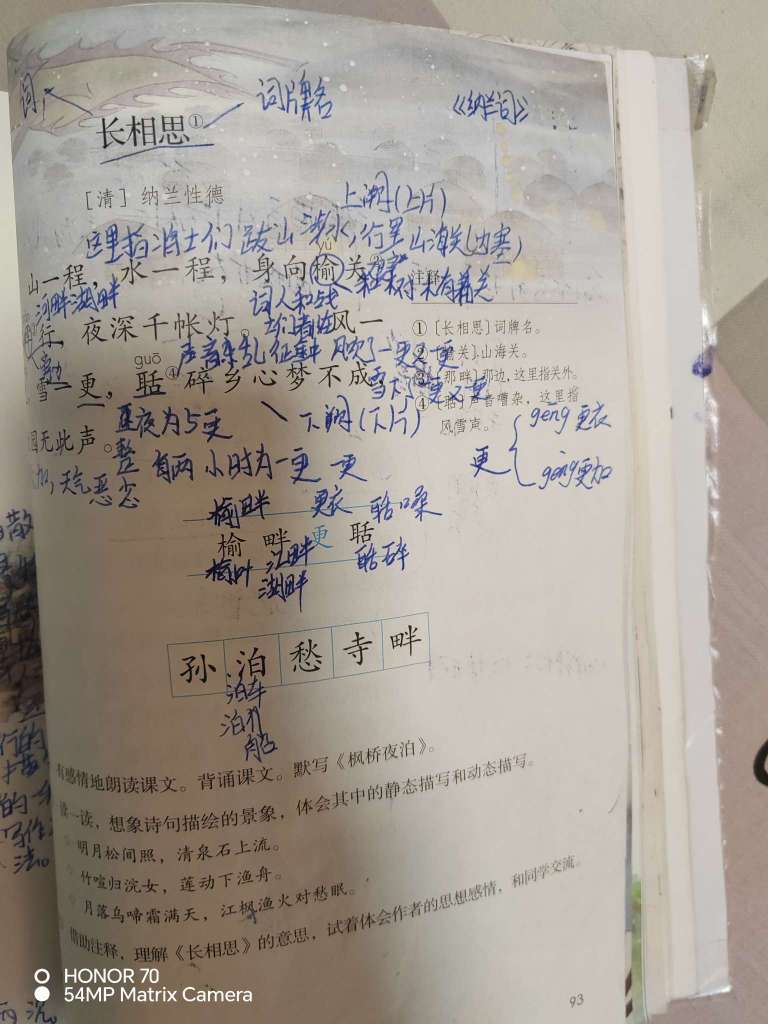 词牌名 《纳兰词》
长相思①
[清] 纳兰性德
上阕(上片)
这里指 将士们 跋山涉水,行至 山海关(内塞)
山一程,水一程,身向榆关
注释
河畔 湖畔
词人和战
行,夜深千帐灯。
风一
① 〔长相思〕词牌名。
关〕山海关。
guō
声音杂乱 风吹了一更又一更
〔那畔〕那边,这里指关外。
雪一更,聒④碎乡心梦不成,
雪下了一更又一更
④〔聒〕声音嘈杂,这里指
风雪声。
夜为五更
下阕(下片)
园无此声。
gēng 更衣
每两小时为一更 更
更
gèng 更加
天气恶劣
榆畔 更衣 聒噪
榆 畔 更 聒
榆叶 江畔 聒碎
湖畔
孙 泊 愁 寺 畔
泊车
泊船
有感情地朗读课文。背诵课文。默写《枫桥夜泊》。
读一读,想象诗句描绘的景象,体会其中的静态描写和动态描写。
明月松间照,清泉石上流。
竹喧归浣女,莲动下渔舟。
月落乌啼霜满天,江枫渔火对愁眠。
借助注释,理解《长相思》的意思,试着体会作者的思想感情,和同学交流。
93
HONOR 70
54MP Matrix Camera